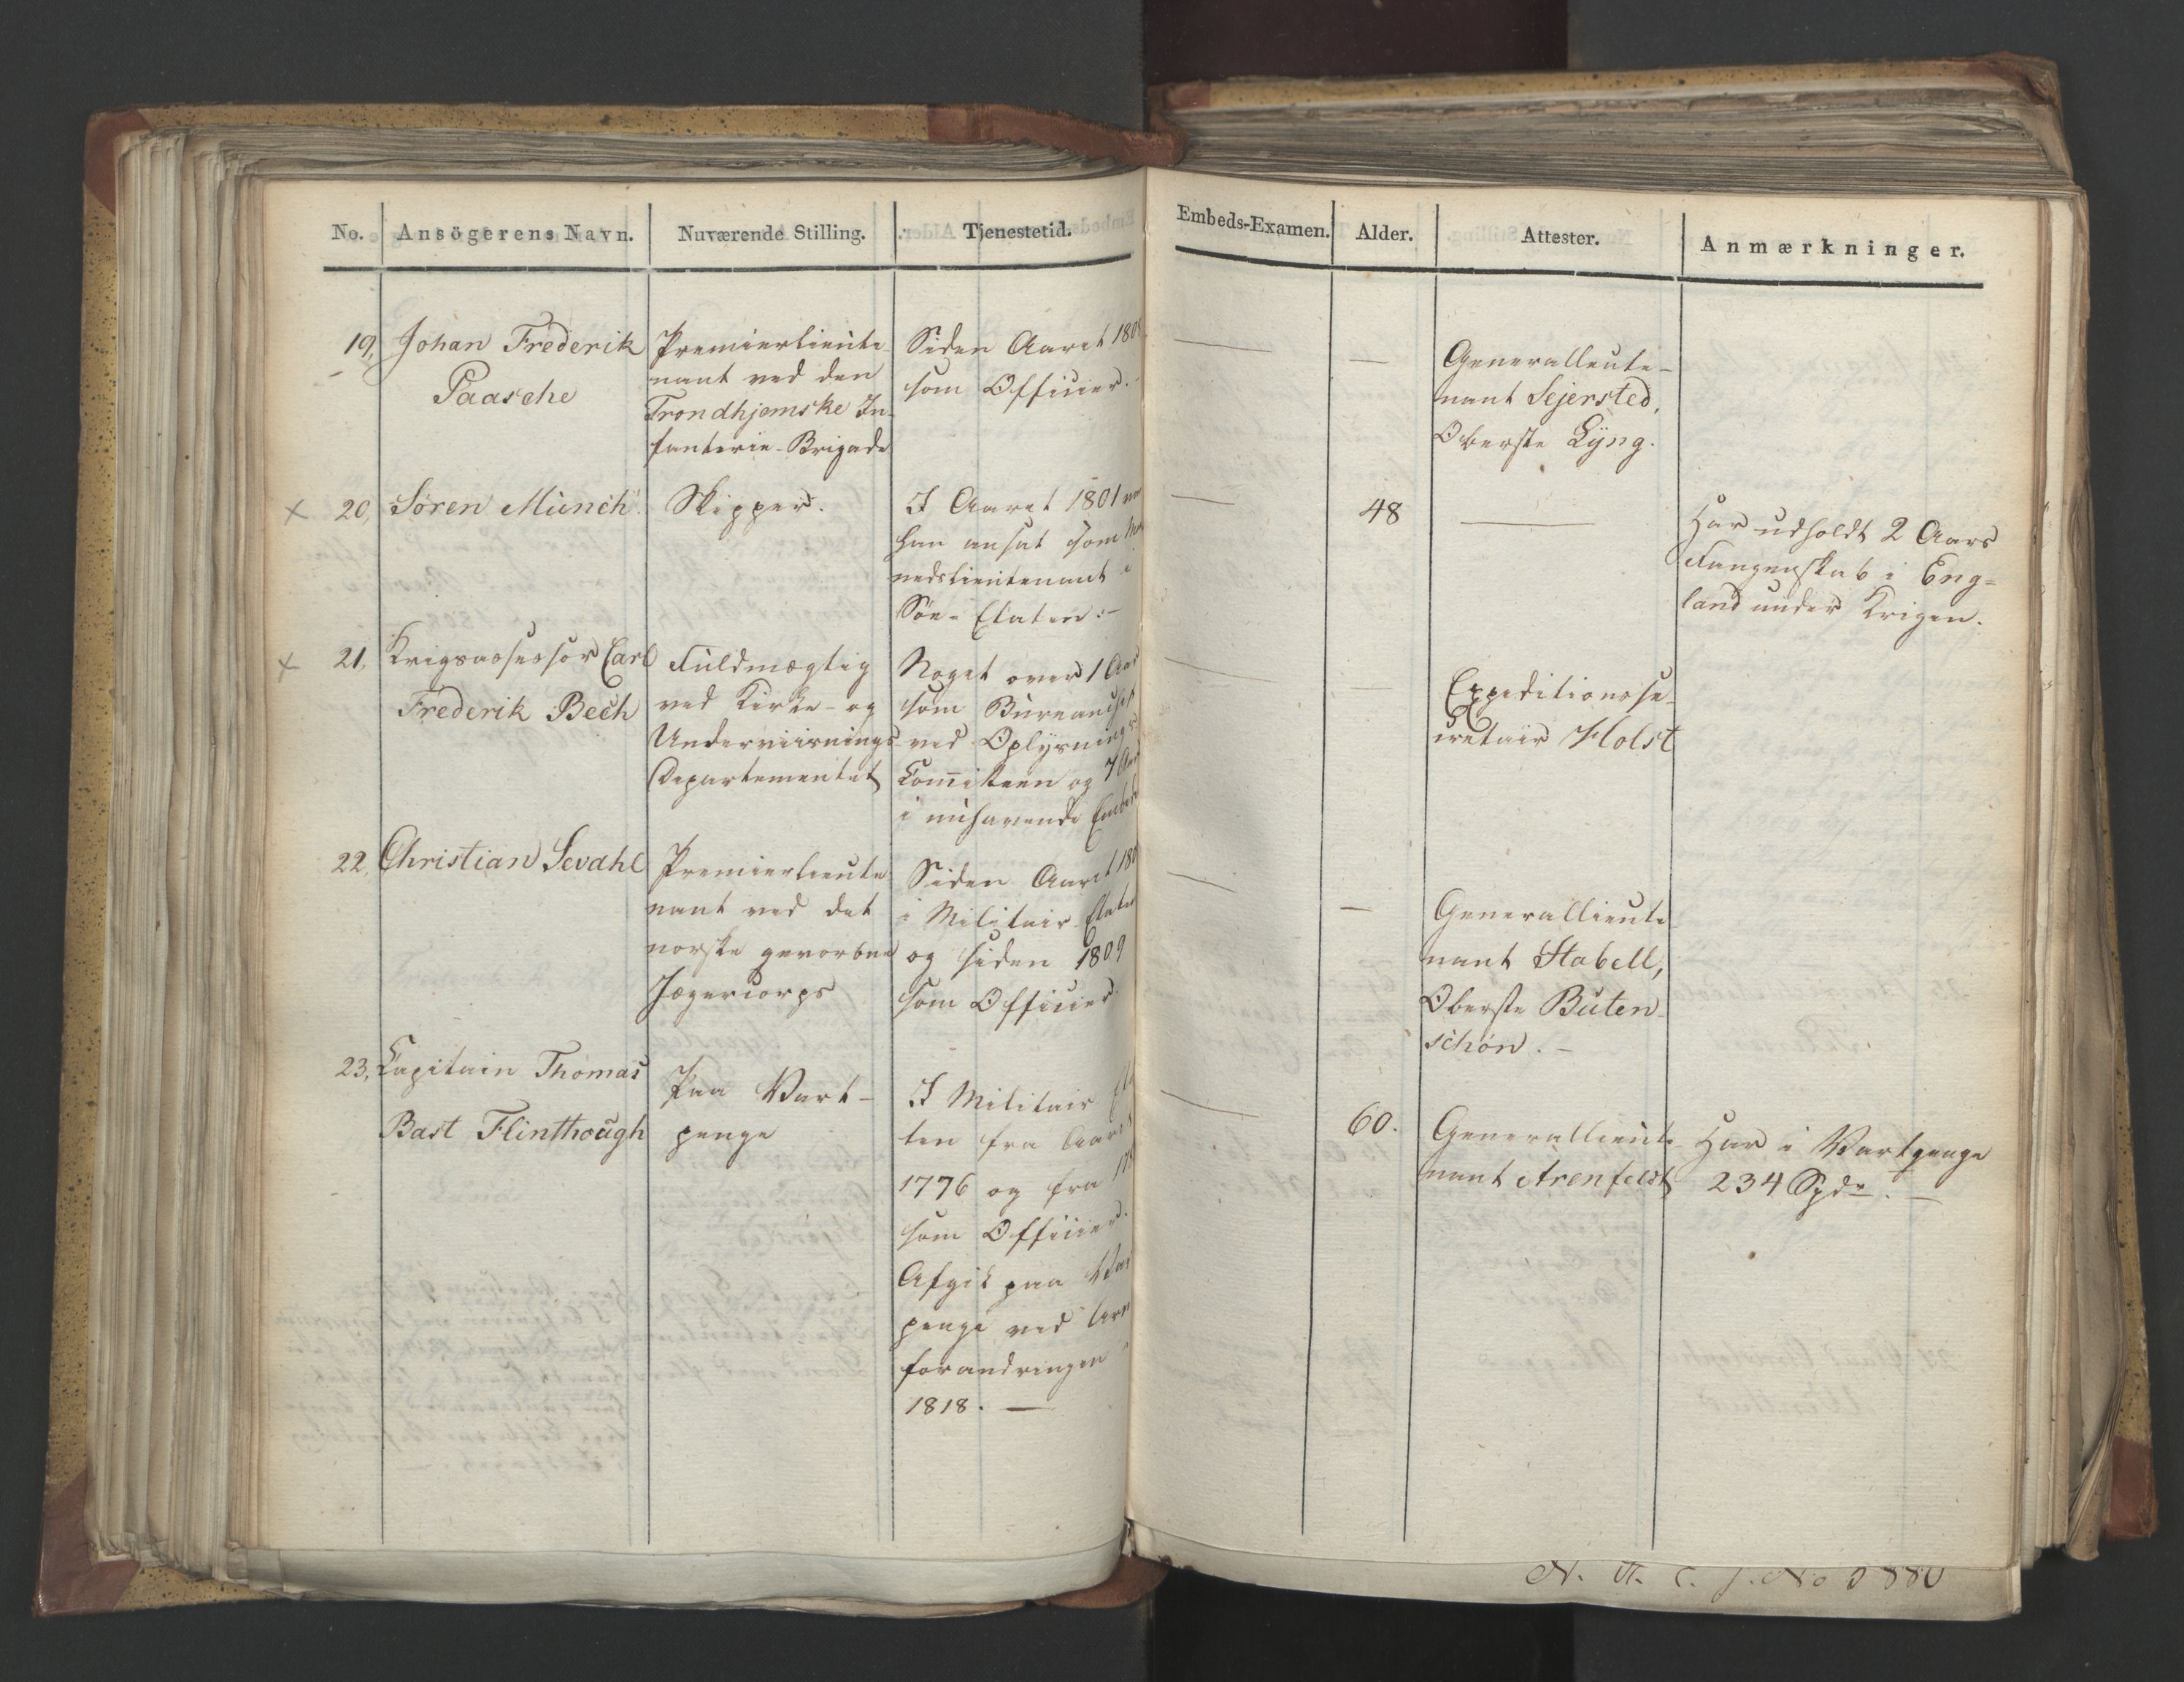 No. Ansögerens Navn. Nuværende Stilling. Tjenestetid. Embeds-Examen. Alder. Attester. Anmærkninger.
19, Johan Frederik
Paasche
Premierlieute
nant ved den
Trondhjemske In-
fanterie-Brigade
Siden Aaret
som Officier.
—
—
Generalleute-
nant Sejersted,
Oberste Lÿng.
× 20, Sören Münch.
Skipper.
I Aaret 1801
han ansat som
nedslieutenant i
Söe-Etaten.-
—
48
—
Har udholdt 2 Aars
Fangenskab i Eng=
land under Krigen.
× 21, Krigsassessor Carl
Frederik Bech
Fuldmægtig
ved Kirke- og
Underviisnings-
Departementet
Noget over 1 Aar
som
ved Oplysnings
Committeen og 7 Aar
i nuhavende
—
—
Expeditionsse-
cretair Holst
22, Christian Sevahl
Premierlieute
nant ved det
norske gevorbne
Jægercorps
Siden Aaret
i Militair-
og siden 1809
som Officier.
—
—
Generallieute
nant Stabell,
Oberste Büten-
schön.-
23, Capitain Thomas
Bast Flinthough
Paa Vart-
penge
I Militair
ten fra Aaret
1776 og fra
som Officier.
Afgik paa
penge ved
forandringen
1818. —
—
60.
Generallieute-
nant Arenfeldt
Har i Vartpenge
234 Spdr. —